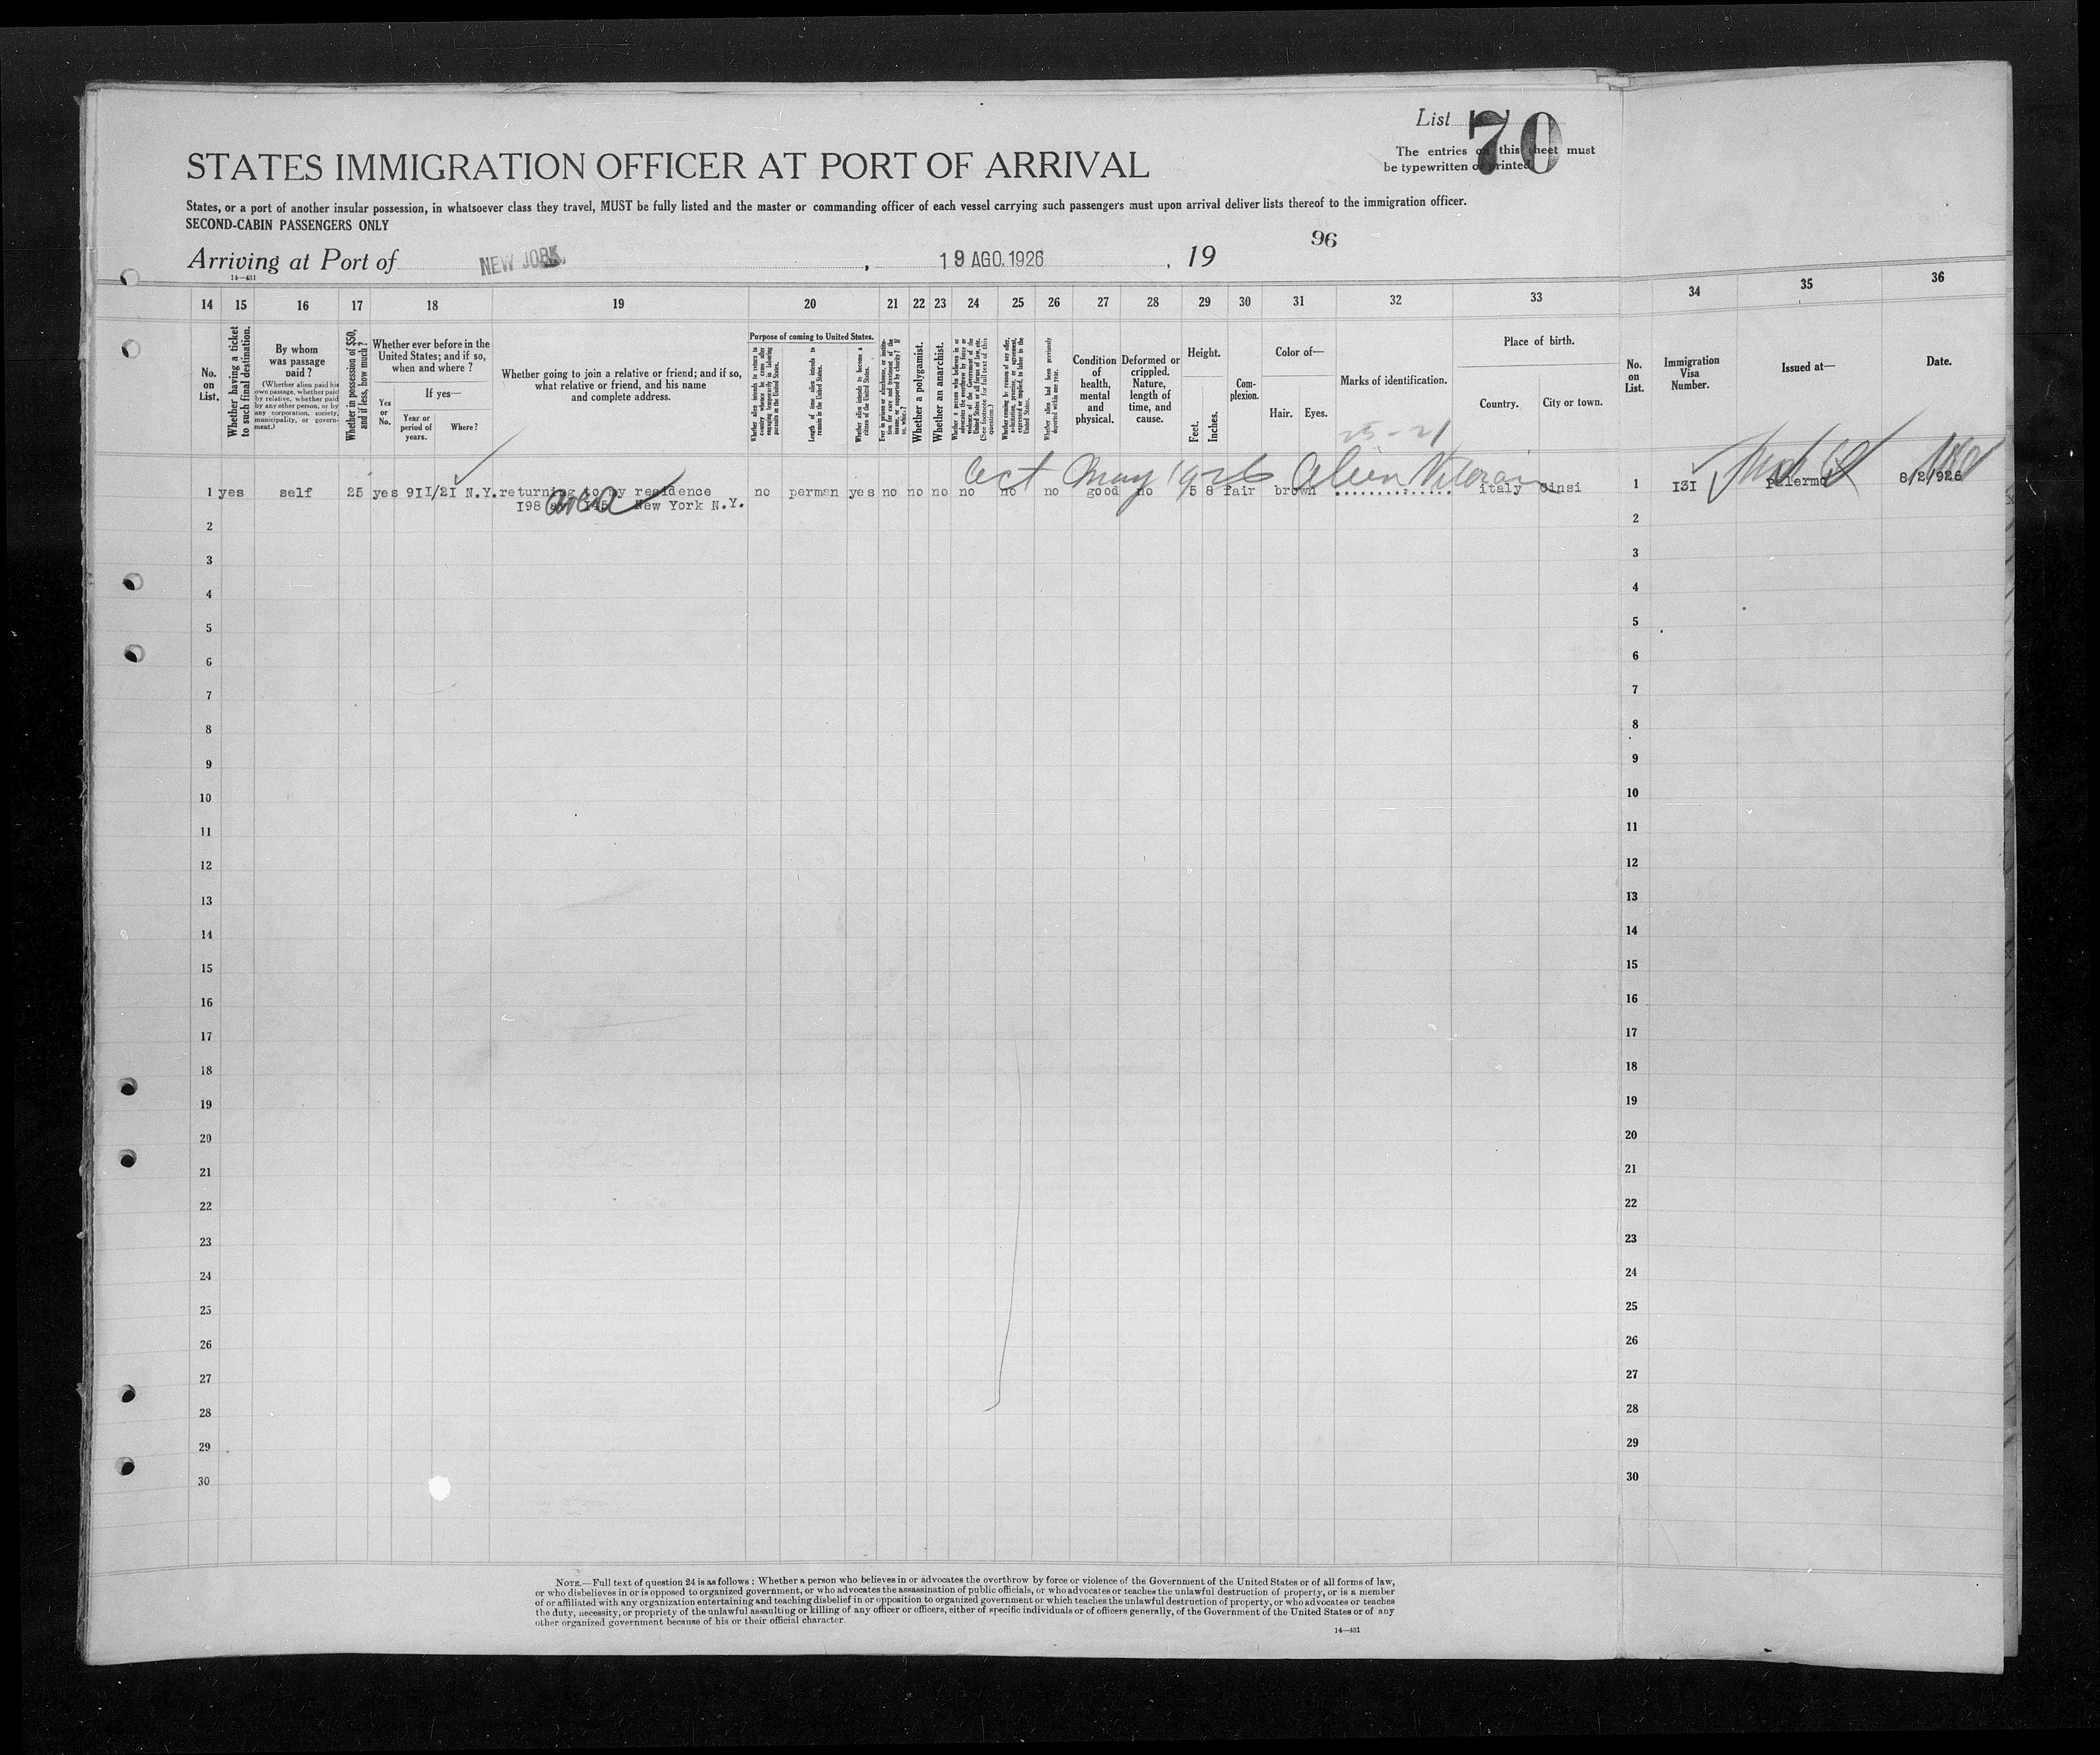 List 70
The entries on this sheet must
be typewritten or printed.
STATES IMMIGRATION OFFICER AT PORT OF ARRIVAL
States, or a port of another insular possession, in whatsoever class they travel, MUST be fully listed and the master or commanding officer of each vessel carrying such passengers must upon arrival deliver lists thereof to the immigration officer.
SECOND-CABIN PASSENGERS ONLY
96
Arriving at Port of NEW JORK, , 19 AGO. 1926 , 19
14—431
14 15 16 17 18 19 20 21 22 23 24 25 26 27 28 29 30 31 32 33 34 35 36
No. on List.
Whether having a ticket to such final destination.
By whom was passage paid?
(Whether alien paid his own passage, whether paid by relative, whether paid by any other person, or by any corporation, society, municipality, or government.)
Whether in possession of $50, and if less, how much?
Whether ever before in the United States; and if so, when and where?
If yes—
Yes or No.
Year or period of years.
Where?
Whether going to join a relative or friend; and if so, what relative or friend, and his name and complete address.
Purpose of coming to United States.
Whether alien intends to return to country whence he came after engaging temporarily in laboring pursuits in the United States.
Length of time alien intends to remain in the United States.
Whether alien intends to become a citizen of the United States.
Ever in prison or almshouse, or institution for care and treatment of the insane, or supported by charity? If so, which?
Whether a polygamist.
Whether an anarchist.
Whether a person who believes in or advocates the overthrow by force or violence of the Government of the United States or all forms of law, etc. (See footnote for full text of this question.)
Whether coming by reason of any offer, solicitation, promise, or agreement, expressed or implied, to labor in the United States.
Whether alien had been previously deported within one year.
Condition of health, mental and physical.
Deformed or crippled. Nature, length of time, and cause.
Height.
Feet. Inches.
Complexion.
Color of—
Hair. Eyes.
Marks of identification.
Place of birth.
Country. City or town.
No. on List.
Immigration Visa Number.
Issued at—
Date.
25-21
Oct May 1926 Alien Veteran
1 yes self 25 yes 9II/2I N.Y. returning to my residence no perman yes no no no no no no good no 5 8 fair brown .............. italy Cinsi 1 I3I Palermo 8/2/926
I98 145 New York N.Y.
2 2
3 3
4 4
5 5
6 6
7 7
8 8
9 9
10 10
11 11
12 12
13 13
14 14
15 15
16 16
17 17
18 18
19 19
20 20
21 21
22 22
23 23
24 24
25 25
26 26
27 27
28 28
29 29
30 30
NOTE.—Full text of question 24 is as follows: Whether a person who believes in or advocates the overthrow by force or violence of the Government of the United States or of all forms of law,
or who disbelieves in or is opposed to organized government, or who advocates the assassination of public officials, or who advocates or teaches the unlawful destruction of property, or is a member
of or affiliated with any organization entertaining and teaching disbelief in or opposition to organized government or which teaches the unlawful destruction of property, or who advocates or teaches
the duty, necessity, or propriety of the unlawful assaulting or killing of any officer or officers, either of specific individuals or of officers generally, of the Government of the United States or of any
other organized government because of his or their official character.
14—431